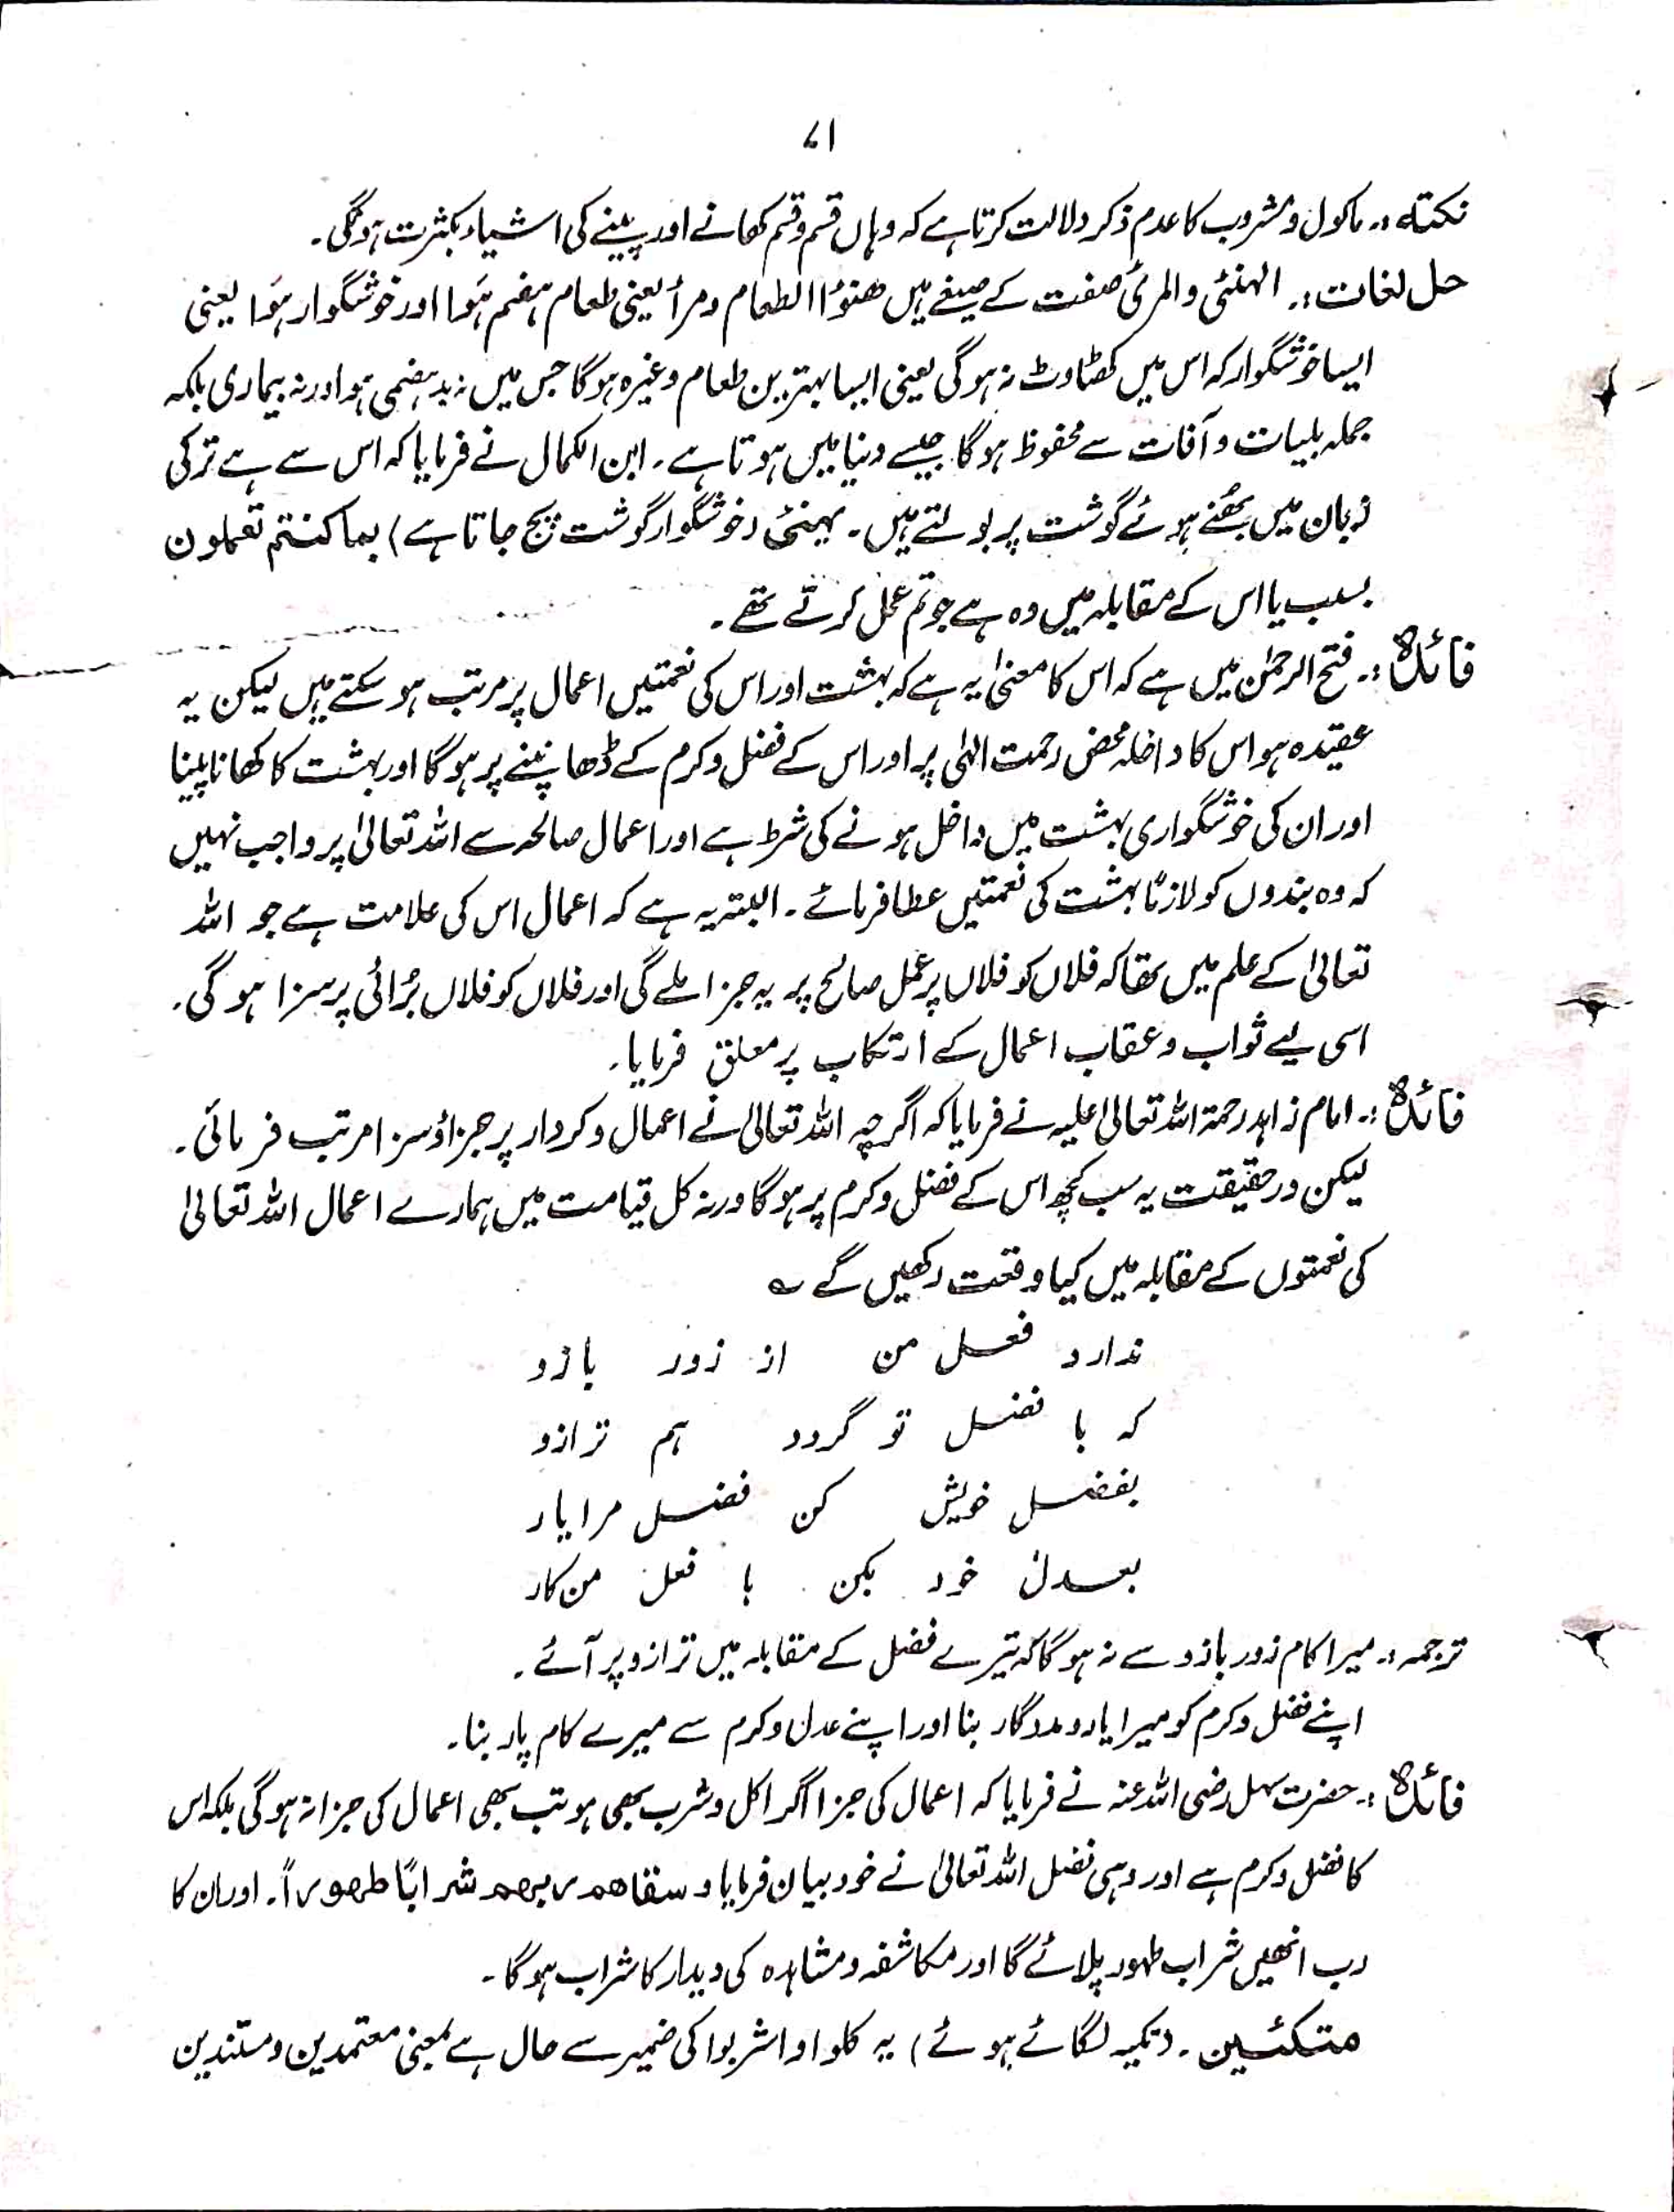 ۷۱
نکتہ :۔ ماکول و مشروب کا عدم ذکر دلالت کرتا ہے کہ وہاں قسم و قسم کھانے اور پینے کی اشیاء بکثرت ہونگی۔
حل لغات :۔ الہنئی والمرئ صفت کے صیغے ہیں ھنؤا الطعام ومرأ یعنی طعام ہضم ہَوا اور خوشگوار ہَوا یعنی
ایسا خوشگوار کہ اس میں کھٹاوٹ نہ ہوگی یعنی ایسا بہترین طعام وغیرہ ہوگا جس میں نہ بدہضمی ہو اور نہ بیماری بلکہ
جملہ بلیات و آفات سے محفوظ ہوگا جیسے دنیا میں ہوتا ہے۔ ابن الکمال نے فرمایا کہ اس سے ہے ترکی
زبان میں بھُنے ہوئے گوشت پر بولتے ہیں۔ یہنئ (خوشگوار گوشت پچ جاتا ہے) بما کنتم تعملون
بسبب یا اس کے مقابلہ میں وہ ہے جو تم عمل کرتے تھے۔
فائدہ :۔ فتح الرحمٰن میں ہے کہ اس کا معنیٰ یہ ہے کہ بہشت اور اس کی نعمتیں اعمال پر مرتب ہو سکتے ہیں لیکن یہ
عقیدہ ہو اس کا داخلہ محض رحمت الہٰی پر اور اس کے فضل و کرم کے ڈھانپنے پر ہوگا اور بہشت کا کھانا پینا
اور ان کی خوشگواری بہشت میں داخل ہونے کی شرط ہے اور اعمال صالحہ سے اللہ تعالیٰ پر واجب نہیں
کہ وہ بندوں کو لازمًا بہشت کی نعمتیں عطا فرمائے۔ البتہ یہ ہے کہ اعمال اس کی علامت ہے جو اللہ
تعالیٰ کے علم میں تھا کہ فلاں کو فلاں پر عمل صالح پر یہ جزا ملے گی اور فلاں کو فلاں بُرائی پر سزا ہوگی۔
اسی لیے ثواب و عقاب اعمال کے ارتکاب پر معلق فرمایا۔
فائدہ :۔ امام زاہد رحمۃ اللہ تعالیٰ علیہ نے فرمایا کہ اگرچہ اللہ تعالیٰ نے اعمال و کردار پر جزاؤ سزا مرتب فرمائی۔
لیکن درحقیقت یہ سب کچھ اس کے فضل و کرم پر ہوگا ورنہ کل قیامت میں ہمارے اعمال اللہ تعالیٰ
کی نعمتوں کے مقابلہ میں کیا وقعت رکھیں گے ؎
ندارد فعل من از زور بازو
کہ با فضل تو گردد ہم ترازو
بفضل خویش کن فضل مرا یار
بعدل خود بکن با فعل من کار
ترجمہ :۔ میرا کام زور بازو سے نہ ہوگا کہ تیرے فضل کے مقابلہ میں ترازو پر آئے۔
اپنے فضل و کرم کو میرا یار و مددگار بنا اور اپنے عدل و کرم سے میرے کام پار بنا۔
فائدہ :۔ حضرت سہل رضی اللہ عنہ نے فرمایا کہ اعمال کی جزا اگر اکل و شرب بھی ہو تب بھی اعمال کی جزا نہ ہوگی بلکہ اس
کا فضل و کرم ہے اور وہی فضل اللہ تعالیٰ نے خود بیان فرمایا وسقاھم ربھم شرابًا طھوراً۔ اور ان کا
رب انھیں شراب طہور پلائے گا اور مکاشفہ و مشاہدہ کی دیدار کا شراب ہوگا۔
متکئین۔ (تکیہ لگائے ہوئے) یہ کلوا واشربوا کی ضمیر سے حال ہے بمعنی معتمدین و مستندین